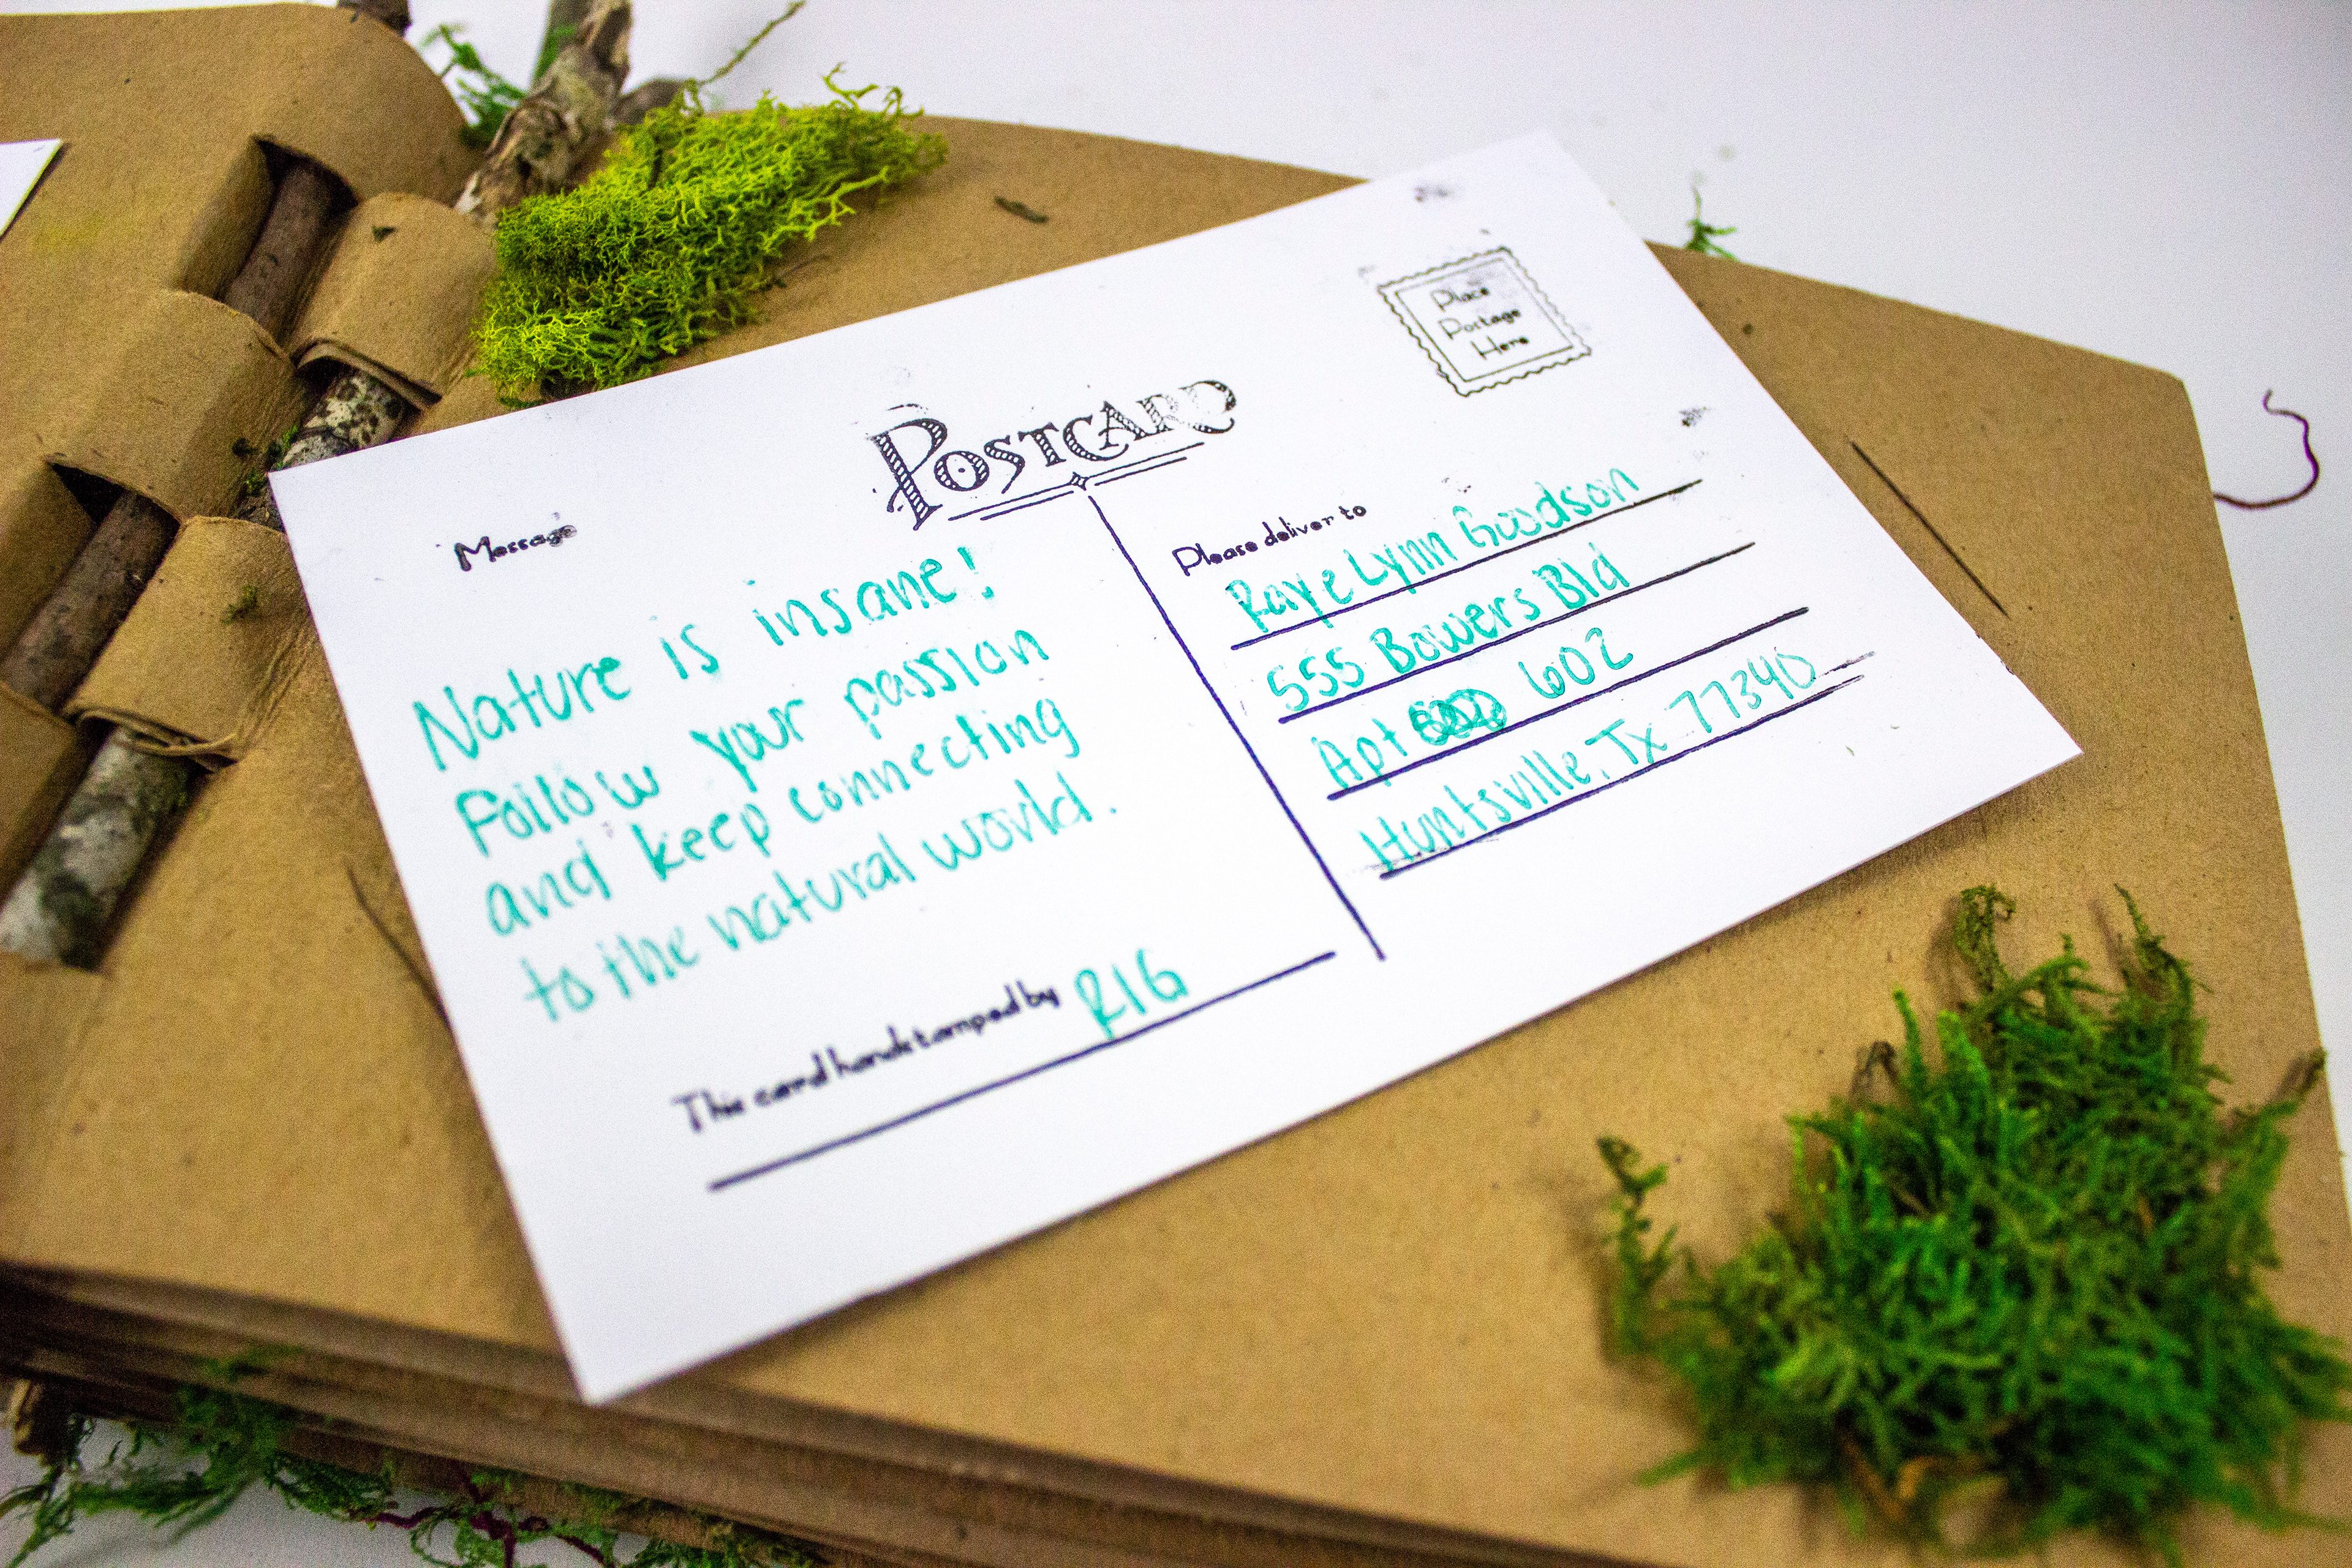 Place
Postage
Here
POSTCARD
Message
Nature is insane!
Follow your passion
and keep connecting
to the natural world.
This card handstamped by RIG
Please deliver to
Raye Lynn Goodson
555 Bowers Bld
Apt 602
Huntsville, Tx 77340